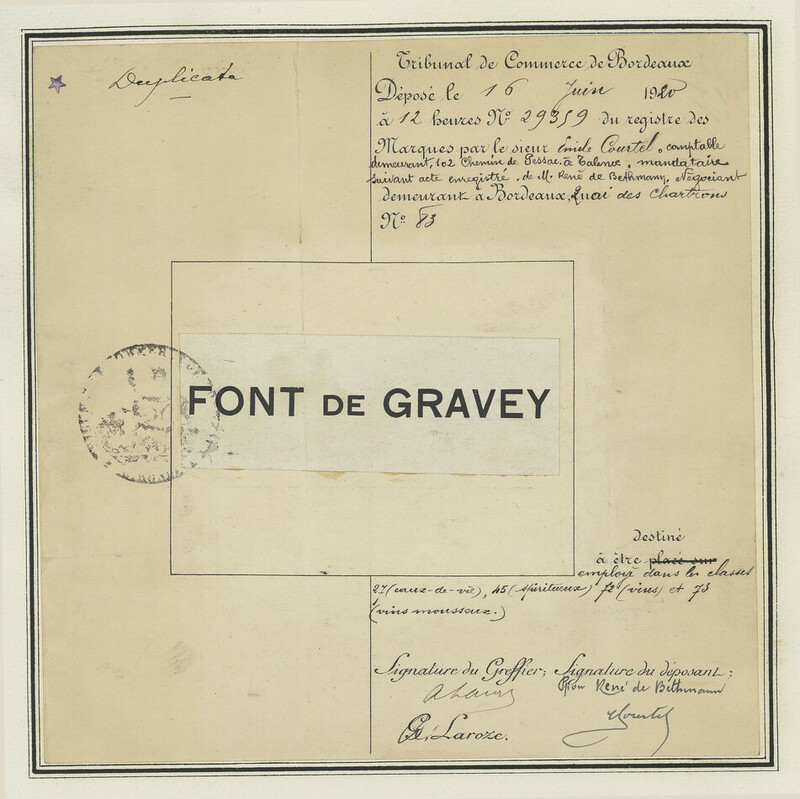 Duplicata
Tribunal de Commerce de Bordeaux
Déposé le 16 Juin 1920
à 12 heures No 29359 du registre des
Marques par le sieur Emile Courtel, comptable
demeurant, 102 Chemin de Pessac, à Talence, mandataire
suivant acte enregistré, de M. René de Bethmann, Négociant
demeurant à Bordeaux, Quai des Chartrons
No 83
FONT DE GRAVEY
destiné
à être placé sur
employé dans les classes
27 (eaux-de-vie), 45 (spiritueux) 72 (vins) et 73
(vins mousseux.)
Signature du Greffier; Signature du déposant;
Pon René de Bethmann
Courtel
G. Laroze.